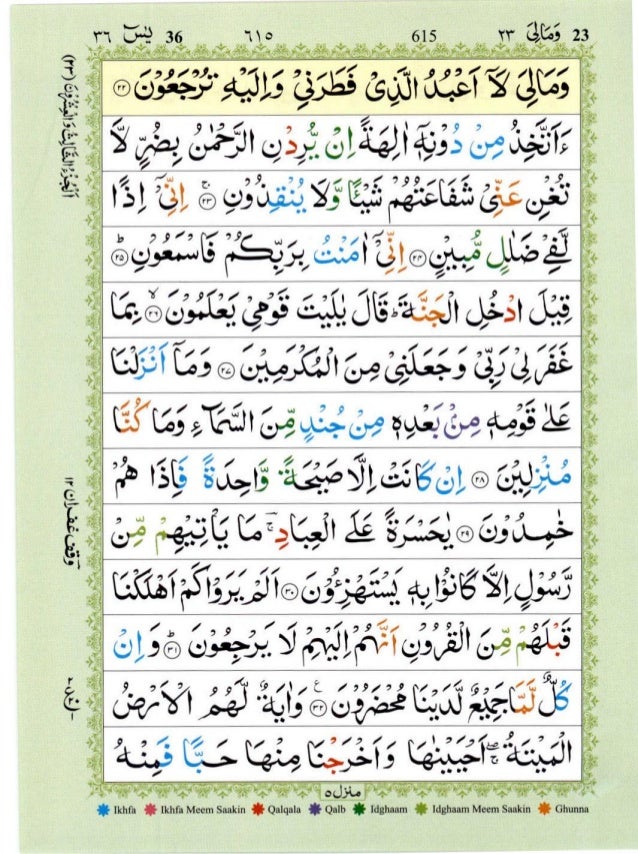 یٰسٓ ٣٦ 36 ٦١٥ 615 وَمَالِیَ ٢٣ 23
وَمَالِیَ لَاۤ اَعْبُدُ الَّذِیْ فَطَرَنِیْ وَاِلَیْهِ تُرْجَعُوْنَ ﴿٢٢﴾
ءَاَتَّخِذُ مِنْ دُوْنِهٖۤ اٰلِهَةً اِنْ یُّرِدْنِ الرَّحْمٰنُ بِضُرٍّ لَّا
تُغْنِ عَنِّیْ شَفَاعَتُهُمْ شَیْـًٔا وَّلَا یُنْقِذُوْنِ ۚ﴿٢٣﴾ اِنِّیْۤ اِذًا
لَّفِیْ ضَلٰلٍ مُّبِیْنٍ ﴿٢٤﴾ اِنِّیْۤ اٰمَنْتُ بِرَبِّكُمْ فَاسْمَعُوْنِ ؕ﴿٢٥﴾
قِیْلَ ادْخُلِ الْجَنَّةَ ؕ قَالَ یٰلَیْتَ قَوْمِیْ یَعْلَمُوْنَ ۙ﴿٢٦﴾ بِمَا
غَفَرَ لِیْ رَبِّیْ وَجَعَلَنِیْ مِنَ الْمُكْرَمِیْنَ ﴿٢٧﴾ وَمَاۤ اَنْزَلْنَا
عَلٰی قَوْمِهٖ مِنْۢ بَعْدِهٖ مِنْ جُنْدٍ مِّنَ السَّمَآءِ وَمَا كُنَّا
مُنْزِلِیْنَ ﴿٢٨﴾ اِنْ كَانَتْ اِلَّا صَیْحَةً وَّاحِدَةً فَاِذَا هُمْ
خٰمِدُوْنَ ﴿٢٩﴾ یٰحَسْرَةً عَلَی الْعِبَادِ ۚ مَا یَاْتِیْهِمْ مِّنْ
رَّسُوْلٍ اِلَّا كَانُوْا بِهٖ یَسْتَهْزِءُوْنَ ﴿٣٠﴾ اَلَمْ یَرَوْا كَمْ اَهْلَكْنَا
قَبْلَهُمْ مِّنَ الْقُرُوْنِ اَنَّهُمْ اِلَیْهِمْ لَا یَرْجِعُوْنَ ؕ﴿٣١﴾ وَاِنْ
كُلٌّ لَّمَّا جَمِیْعٌ لَّدَیْنَا مُحْضَرُوْنَ ﴿٣٢﴾ وَاٰیَةٌ لَّهُمُ الْاَرْضُ
الْمَیْتَةُ ۚۖ اَحْیَیْنٰهَا وَاَخْرَجْنَا مِنْهَا حَبًّا فَمِنْهُ
منزل ٥
Ikhfa Ikhfa Meem Saakin Qalqala Qalb Idghaam Idghaam Meem Saakin Ghunna
اَلْجُزْءُ الثَّالِثُ وَالْعِشْرُوْنَ (٢٣)
وقف غفران ١٢